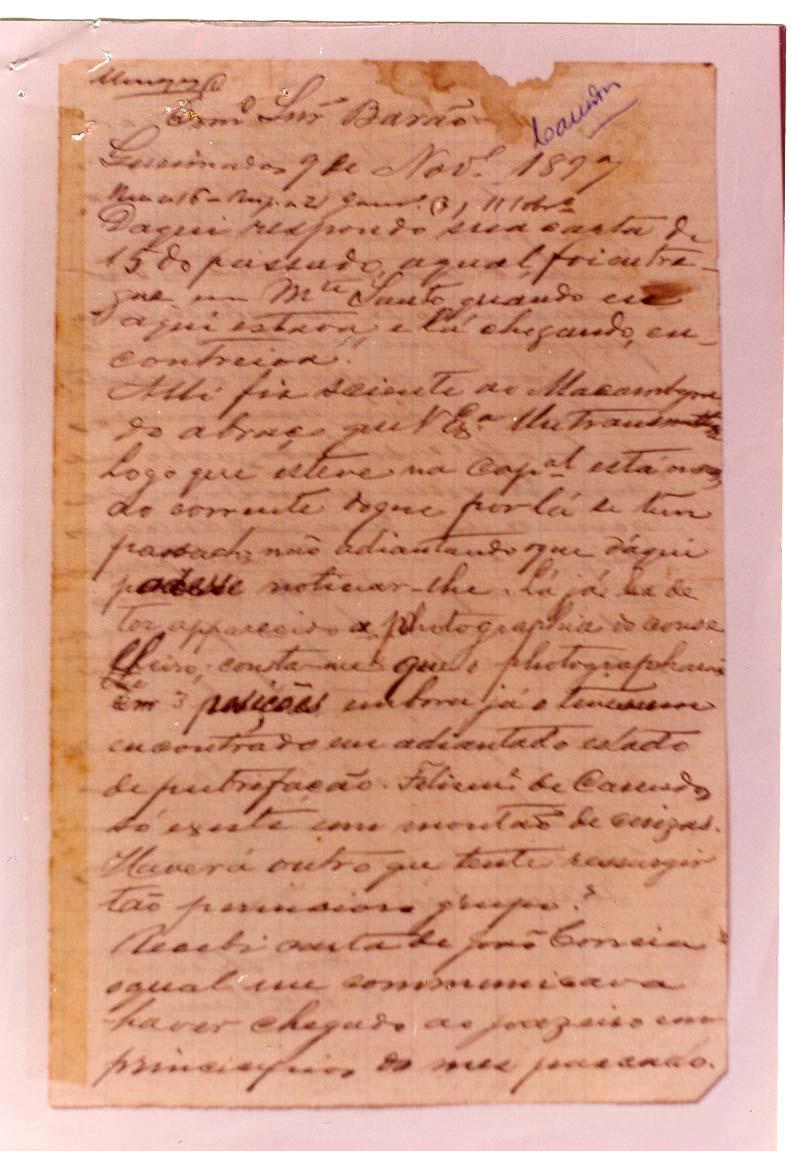 Menezes
Exmº Snr Barão
Canudos
Queimadas 9 de Novº 1897
Daqui respondo sua carta de
15 do passado, aqual, foi entre-
gue em Mte Santo, quando eu
aqui estava e lá chegando, en-
contreia.
Alli fiz sciente ao Macambyra
do abraço que V Exª lhe transmitte
Logo que esteve na capal está
ao corrente doque por lá se tem
passado, não adiantando o que d'aqui
podesse noticiar-lhe. Lá já ha de
ter apparecido a photographia do conse
lheiro; consta-me que o photographaram
em 3 posições embora já o tivessem
encontrado em adiantado estado
de putrefacão. Felizme de Canudos
só existe um montão de cinzas.
Haverá outro que tente ressurgir
tão pernicioso grupo?
Recebi carta de João Correia
aqual me communicava
haver chegado ao Joazeiro em
principios do mes passado.